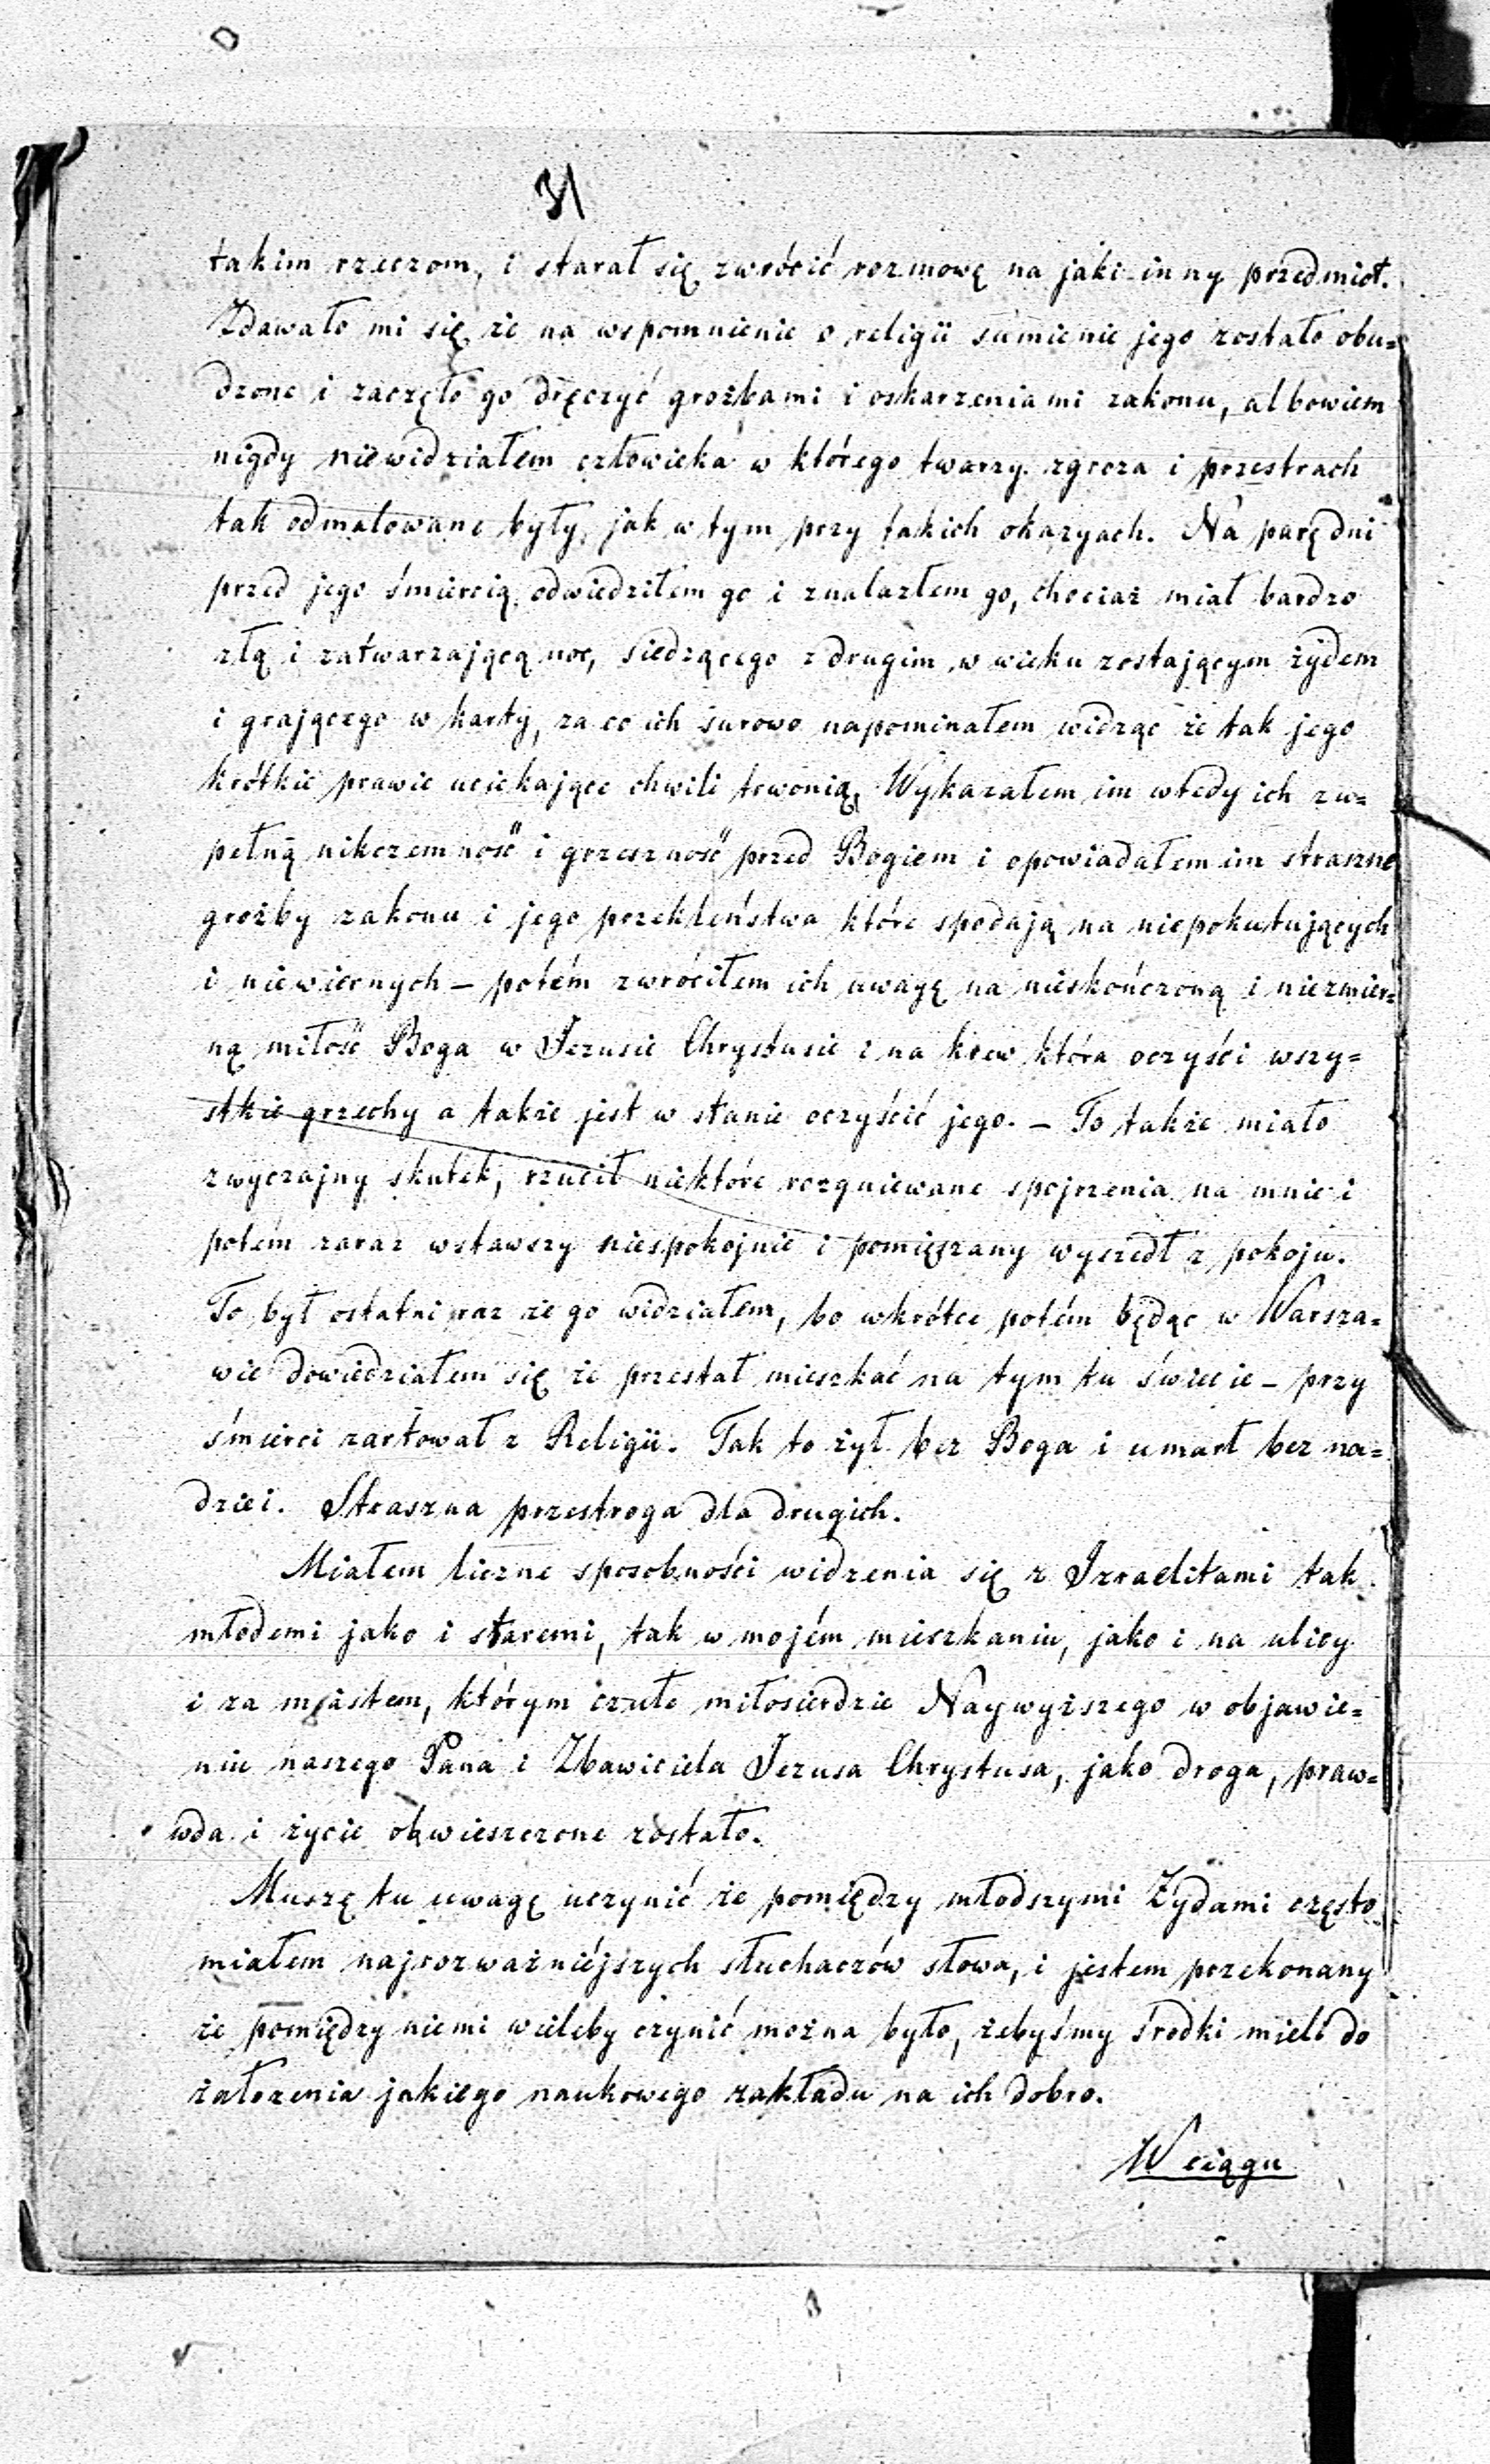 31
takim rzeczom, i starał się zwrócić rozmowę na jaki inny przedmiot.
Zdawało mi się że na wspomnienie o religii sumienie jego zostało obu=
dzone i zaczęło go dręczyć groźbami i oskarzeniami zakonu, albowiem
nigdy niewidziałem człowieka w którego twarzy zgroza i przestrach
tak odmalowane były, jak w tym przy takich okazyach. Na parę dni
przed jego śmiercią odwiedziłem go i znalazłem go, chociaż miał bardzo
złą i zatwarzającą noc, siedzącego z drugim w wieku zostającym żydem
i grającego w karty, za co ich surowo napominałem widząc że tak jego
krótkie prawie uciekające chwili trwonią. Wykazałem im wtedy ich zu=
pełną nikczemność i grzeszność przed Bogiem i opowiadałem im straszne
groźby zakonu i jego przekleństwa które spadają na niepokutujących
i niewiernych – potém zwróciłem ich uwagę na nieskończoną i niezmier=
ną miłość Boga w Jezusie Chrystusie i na krew która oczyści wszy=
stkie grzechy a także jest w stanie oczyścić jego. – To także miało
zwyczajny skutek, rzucił niektóre rozgniewane spojrzenia na mnie i
potém zaraz wstawszy niespokojnie i pomięszany wyszedł z pokoju.
To był ostatni raz że go widziałem, bo wkrótce potém będąc w Warsza=
wie dowiedziałem się że przestał mieszkać na tym tu świecie – przy
śmierci zartował z Religii. Tak to żył bez Boga i umarł bez na=
dziei. Straszna przestroga dla drugich.
Miałem liczne sposobności widzenia się z Izraelitami tak
młodemi jako i staremi, tak w mojém mieszkaniu, jako i na ulicy
i za miastem, którym czułe miłosierdzie Naywyższego w objawie=
niu naszego Pana i Zbawiciela Jezusa Chrystusa, jako droga, praw=
wda i życie obwieszczone zostało.
Muszę tu uwagę uczynić że pomiędzy młodszymi Żydami często
miałem najrozważniéjszych słuchaczów słowa, i jestem przekonany
że pomiędzy niemi wieleby czynić można było, żebyśmy środki mieli do
założenia jakiego naukowego zakładu na ich dobro.
W ciągu